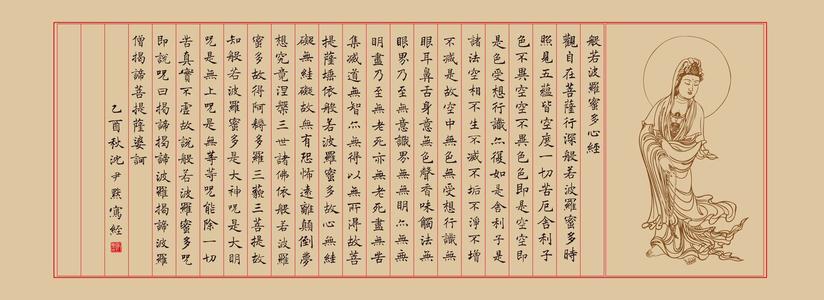 般若波羅蜜多心經
觀自在菩薩行深般若波羅蜜多時
照見五蘊皆空度一切苦厄舍利子
色不異空空不異色色即是空空即
是色受想行識亦復如是舍利子是
諸法空相不生不滅不垢不淨不增
不減是故空中無色無受想行識無
眼耳鼻舌身意無色聲香味觸法無
眼界乃至無意識界無無明亦無無
明盡乃至無老死亦無老死盡無苦
集滅道無智亦無得以無所得故菩
提薩埵依般若波羅蜜多故心無絓
礙無絓礙故無有恐怖遠離顛倒夢
想究竟涅槃三世諸佛依般若波羅
蜜多故得阿耨多羅三藐三菩提故
知般若波羅蜜多是大神呪是大明
呪是無上呪是無等等呪能除一切
苦真實不虛故說般若波羅蜜多呪
即說呪曰揭諦揭諦波羅揭諦波羅
僧揭諦菩提薩婆訶
乙酉秋沈尹默寫經